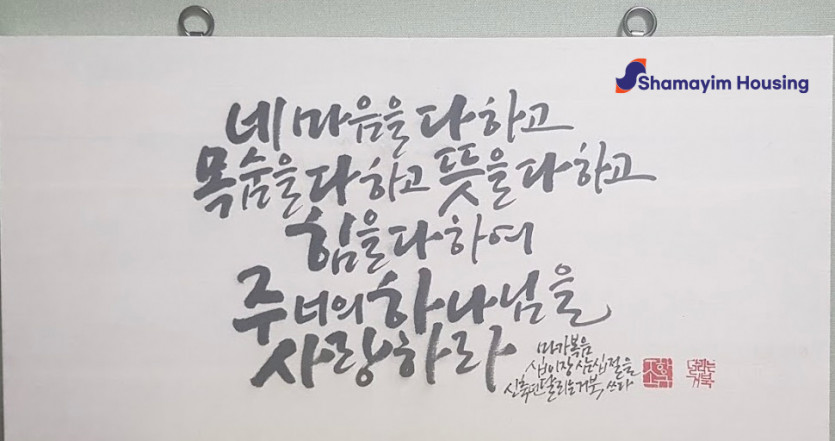 Shamayim Housing
네 마음을 다하고
목숨을 다하고 뜻을 다하고
힘을 다하여
주 너의 하나님을
사랑하라
마가복음
십이장 삼십절을
달리는거북 쓰다